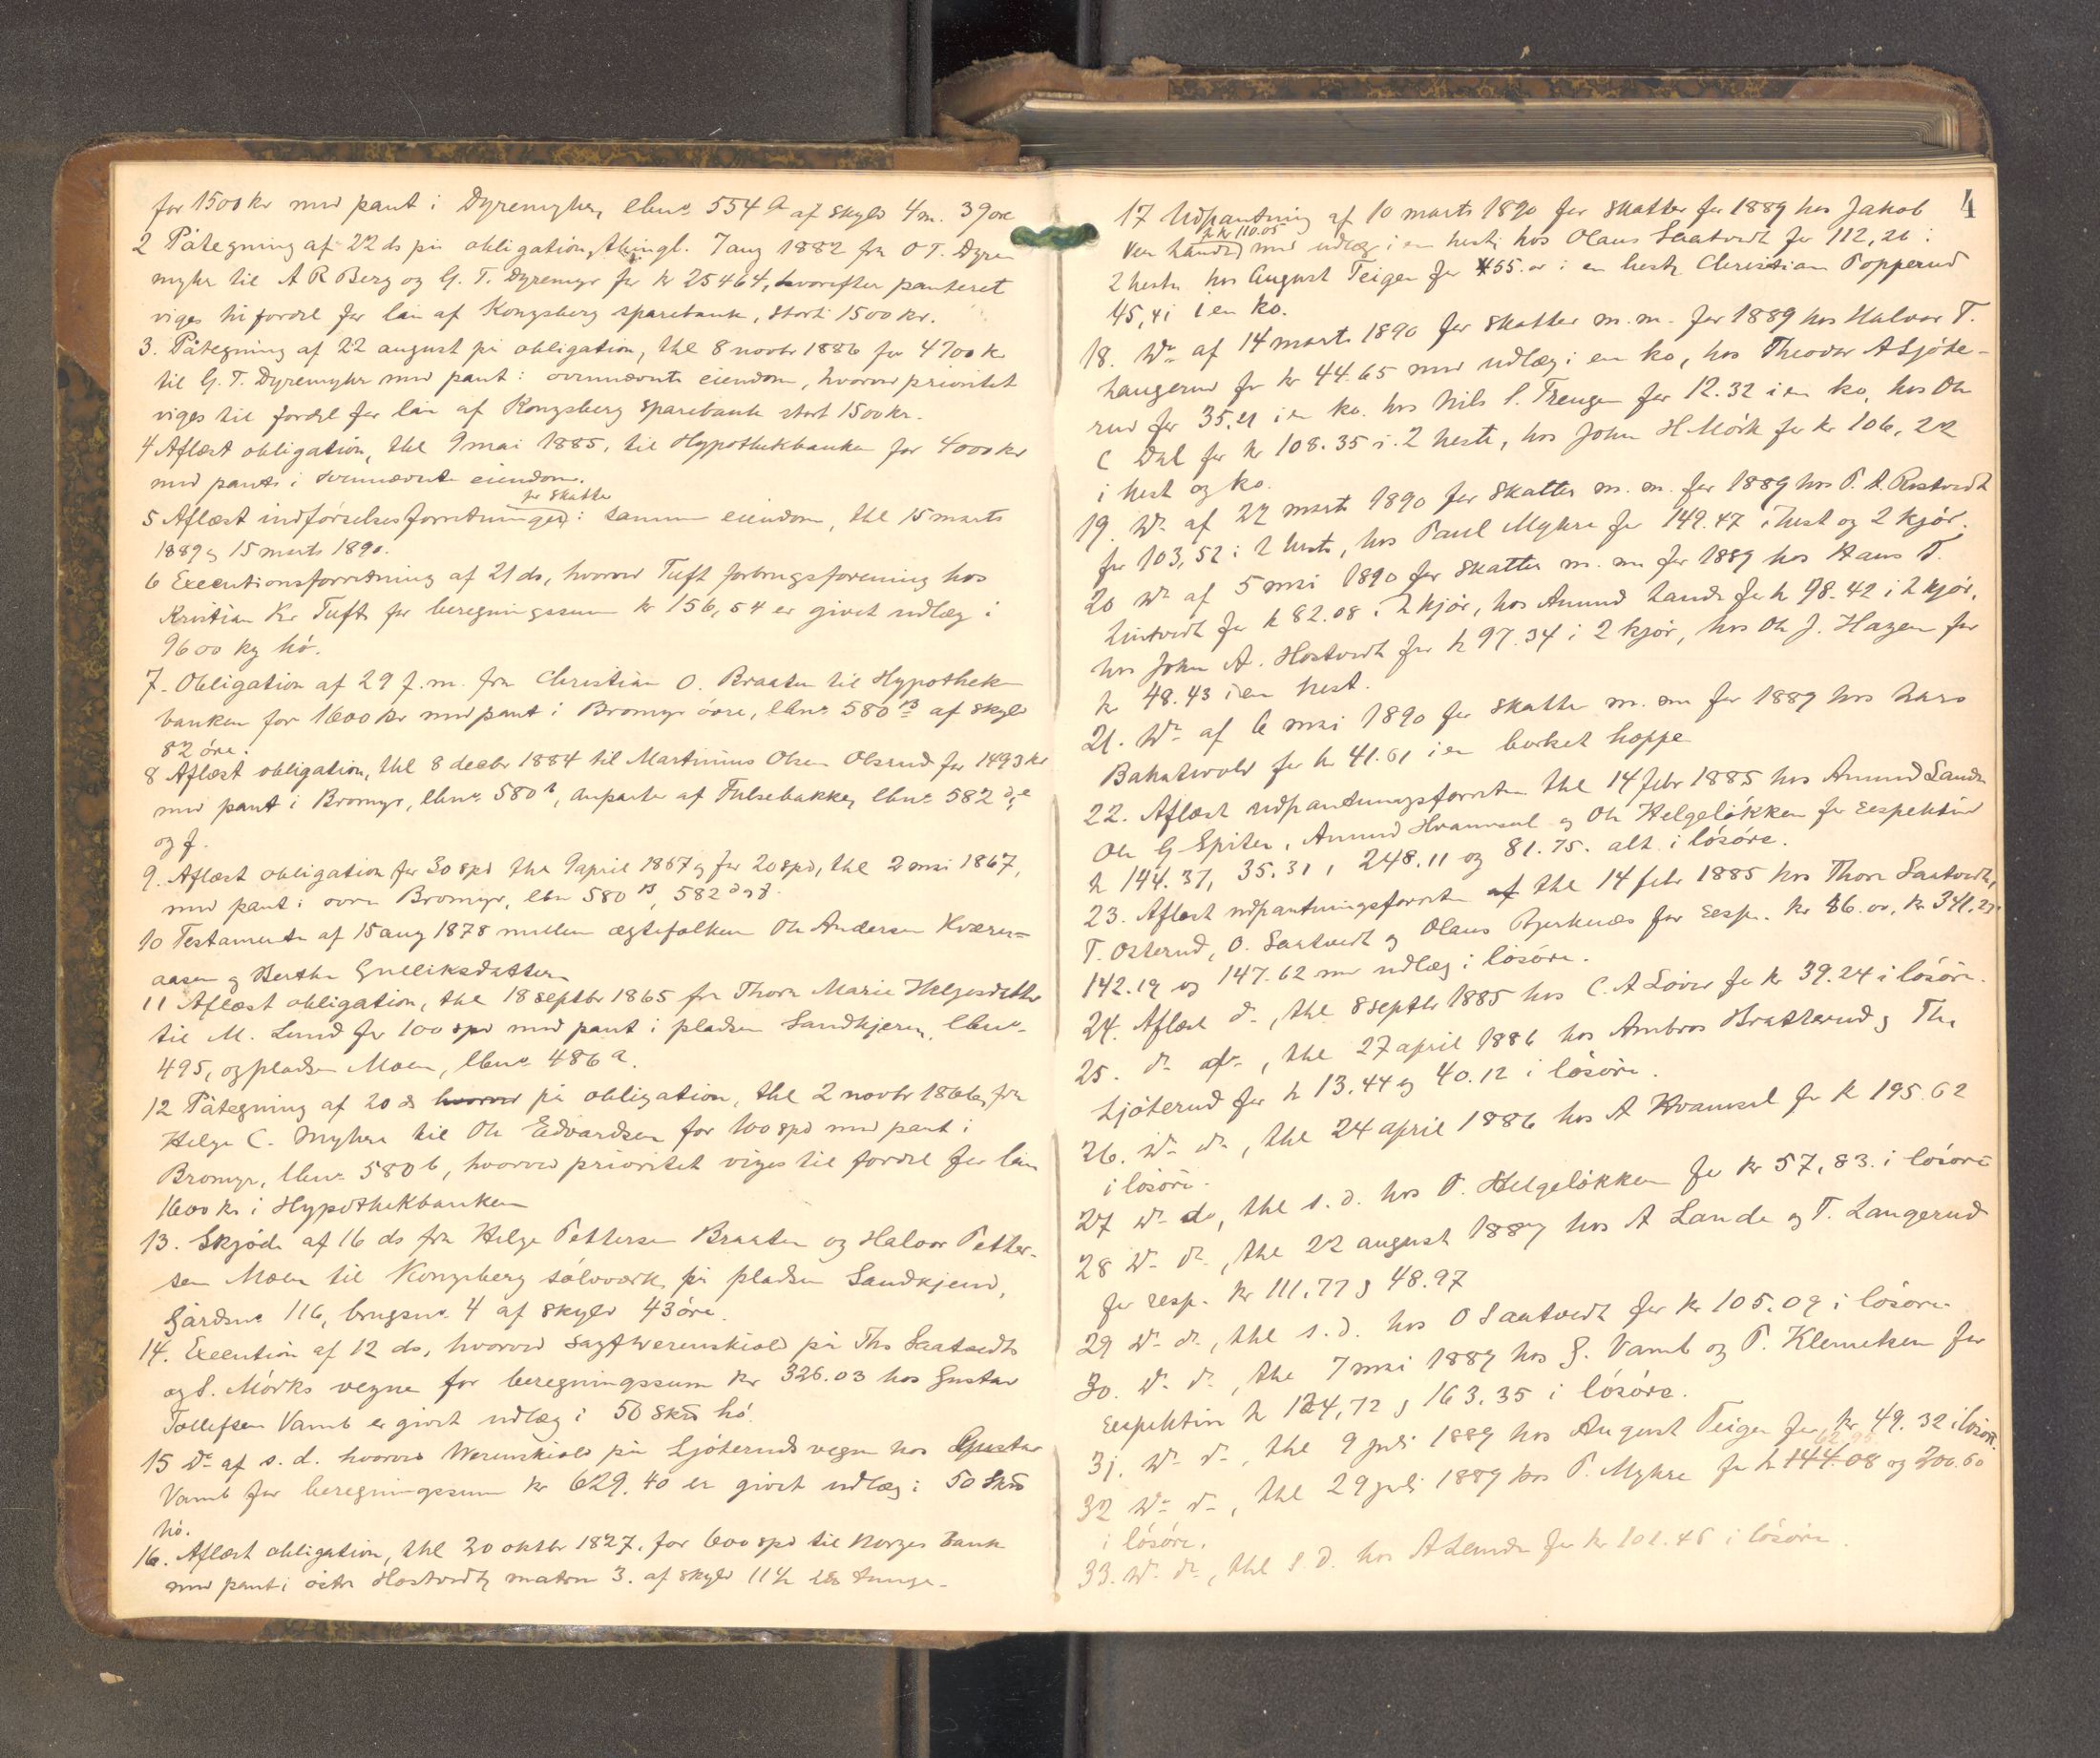 for 1500 kr med pant i Dyremyhr, lbno 554 a af skyld 4 m. 39 øre
2 Påtegning af 22 ds på obligation, thingl. 7 aug 1882 fra O T. Dyre
myhr til A R Berg og G. T. Dyremyr for kr 25464, hvorefter panteret
viges til fordel for lån af Kongsberg sparebank, stort 1500 kr.
3. Påtegning af 22 august på obligation, thl 8 novbr 1886 for 4700 kr
til G. T. Dyremyhr med pant i ovennævnte eiendom, hvorved prioritet
viges til fordel for lån af Kongsberg sparebank stort 1500 kr.
4 Aflæst obligation, thl 9 mai 1885, til Hypothekbanken for 4000 kr
med pant i ovennævnte eiendom.
for skatter
5 Aflæst indførselsforretninger i samme eiendom, thl 15 marts
1889 og 15 marts 1890.
6 Executionsforretning af 21 ds, hvorved Tuft forbrugsforening hos
Kristian Kr Tuft for beregningssum kr 156,54 er givet udlæg i
9600 kg hö.
7. Obligation af 29 f. m. fra Christian O. Braaten til Hypothek-
banken for 1600 kr med pant i Bromyr övre, lbno 580 b af skyld
82 öre.
8 Aflæst obligation, thl 8 decbr 1884 til Martinius Olsen Olsrud for 1493 kr
med pant i Bromyr, lbno 580 b, anparter af Fulsebakke, lbno 582 d, e
og f.
9. Aflæst obligation for 30 spd thl 9 april 1867 og for 20 spd, thl 2 mai 1867,
med pant i øvre Bromyr, lbn 580 b, 582 d og f.
10 Testamente af 15 aug 1878 mellem ægtefolkene Ole Andersen Kværn=
aasen og Berthe Gulliksdatter
11 Aflæst obligation, thl 18 septbr 1865 fra Thore Marie Helgesdatter
til M. Lund for 100 spd med pant i pladsen Sandkjern, lbno
495, og pladsen Moen, lbno 486 a.
12 Påtegning af 20 ds hvorved på obligation, thl 2 novbr 1866, fra
Helge C. Myhre til Ole Edvardsen for 100 spd med pant i
Bromyr, lbno 580 b, hvorved prioritet viges til fordel for lån
1600 kr i Hypothekbanken
13. Skjöde af 16 ds fra Helge Pettersen Braaten og Halvor Petter-
sen Moen til Kongsberg sölvværk på pladsen Sandkjern,
gårdsno 116, brugsno 4 af skyld 43 öre.
14. Execution af 12 ds, hvorved sagf Werenskiold på Ths Saatvedts
og S. Mörks vegne for beregningssum kr 326.03 hos Gustav
Tollefsen Vamb er givet udlæg i 50 skå hö.
15 do af s. d. hvorved Werenskiold på Ljöteruds vegne hos Gustav
Vamb for beregningssum kr 629.40 er givet udlæg i 50 skå
hö.
16. Aflæst obligation, thl 30 oktbr 1827, for 600 spd til Norges Bank
med pant i östre Hostvedt, matrn 3. af skyld 11 1/2 lbs tunge.
4
17 Udpantning af 10 marts 1890 for skatter for 1889 hos Jakob
kr 110.05
med udlæg i en hest, hos Olaus Saatvedt for 112,26 i
2 heste hos August Teigen for 55.00 i en hest, Christian Popperud
45,41 i en ko.
18. Do af 14 marts 1890 for skatter m. m. for 1889 hos Halvor T.
Langerud for kr 44.65 med udlæg i en ko, hos Theodor A Ljöte-
rud for 35.21 i en ko. hos Nils S. Trengen for 12.32 i en ko, hos Ole
C Dal for kr 108.35 i 2 heste, hos John H Mörk for kr 106,22
i hest og ko.
19. Do af 22 marts 1890 for skatter m. m. for 1889 hos P. A. Rostvedt
for 103,52 i 2 heste, hos Paul Myhre for 149.47 i hest og 2 kjör.
20 Do af 5 mai 1890 for skatter m. m. for 1889 hos Hans T.
Lintvedt for kr 82.08 i 2 kjör, hos Amund Lande for kr 98.42 i 2 kjör,
hos John A. Hostvedt for kr 97.34 i 2 kjör, hos Ole J. Hagen for
kr 48.43 i en hest.
21. Do af 6 mai 1890 for skatter m. m. for 1889 hos Lars
Bakatwold for kr 41.61 i en borket hoppe
22. Aflæst udpantningsforretn thl 14 febr 1885 hos Amund Lande
Ole G Spiten, Amund Hvamsal og Ole Helgelökken for respektive
kr 144.37, 35.31, 248.11 og 81.75. alt i lösöre.
23. Aflæst udpantningsforretn af thl 14 febr 1885 hos Thore Saatvedt,
T. Osterud, O. Saatvedt og Olaus Bjerknæs for resp. kr 86.00, kr 341,25
142.19 og 147.62 med udlæg i lösöre.
24. Aflæst do, thl 8 septbr 1885 hos C. A Löver for kr 39.24 i lösöre.
25. do do, thl 27 april 1886 hos Ambros Bratterud og Th.
Ljöterud for kr 13.44 og 40.12 i lösöre.
26. Do do, thl 24 april 1886 hos A Hvamsal for kr 195.62
i lösöre.
27 Do do, thl s. d. hos O. Helgelökken for kr 57,83. i lösöre
28 Do do, thl 22 august 1887 hos A Lande og T. Langerud
for resp. kr 111.77 og 48.97
29 Do do, thl s. d. hos O Saatvedt for kr 105.09 i lösöre.
30. do do, thl 7 mai 1889 hos G. Vamb og P. Klemetsen for
respektive kr 124,72 og 163.35 i lösöre.
31. Do do, thl 9 juli 1889 hos August Teigen for kr 49.32 i lösöre.
32 Do do, thl 29 juli 1889 hos P. Myhre for kr 144.08 og 200.60
i lösöre.
33. Do do, thl s. d. hos A Lande for kr 101.46 i lösöre.